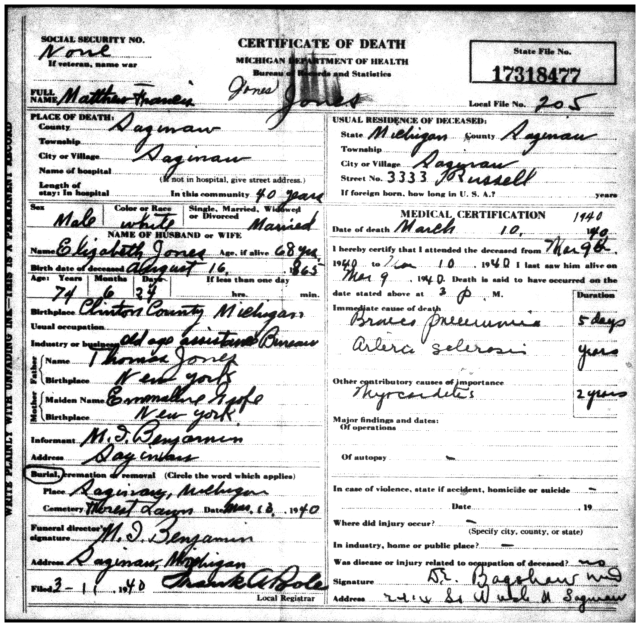 SOCIAL SECURITY NO.
None
If veteran, name war
CERTIFICATE OF DEATH
MICHIGAN DEPARTMENT OF HEALTH
Bureau of Records and Statistics
State File No.
17318477
FULL NAME Matthew Francis Jones Jones
Local File No. 205
PLACE OF DEATH:
County Saginaw
Township
City or Village Saginaw
Name of hospital
(If not in hospital, give street address.)
Length of stay: In hospital In this community 40 years
USUAL RESIDENCE OF DECEASED:
State Michigan County Saginaw
Township
City or Village Saginaw
Street No. 3333 Russell
If foreign born, how long in U. S. A.? years
Sex Color or Race Single, Married, Widowed or Divorced
Male white Married
NAME OF HUSBAND OR WIFE
Name Elizabeth Jones Age, if alive 68 yrs.
Birth date of deceased August 16, 1865
Age: Years Months Days If less than one day
74 6 24 hrs. min.
Birthplace Clinton County Michigan
Usual occupation
Industry or business old age assistance Bureau
Father
Name Thomas Jones
Birthplace New York
Mother
Maiden Name Emmaline
Birthplace New York
Informant M. I. Benjamin
Address Saginaw
Burial, cremation or removal (Circle the word which applies)
Place Saginaw, Michigan
Cemetery Forest Lawn Date Mar. 13, 1940
Funeral director's signature M. I. Benjamin
Address Saginaw, Michigan
Filed 3-1 1940 Frank A Pole
Local Registrar
MEDICAL CERTIFICATION 1940
Date of death March 10, 1940
I hereby certify that I attended the deceased from Mar 9th
1940 to Mar 10 1940 I last saw him alive on
Mar 9 1940 Death is said to have occurred on the
date stated above at 3 p. M.
Duration
Immediate cause of death
Bronco pneumonia 5 days
Arterio sclerosis years
Other contributory causes of importance
Myocarditis 2 years
Major findings and dates:
Of operations
Of autopsy -
In case of violence, state if accident, homicide or suicide -
Date 19
Where did injury occur? -
(Specify city, county, or state)
In industry, home or public place? -
Was disease or injury related to occupation of deceased? no
Signature D.E. Bagshaw MD
Address Saginaw
WRITE PLAINLY WITH UNFADING INK—THIS IS A PERMANENT RECORD